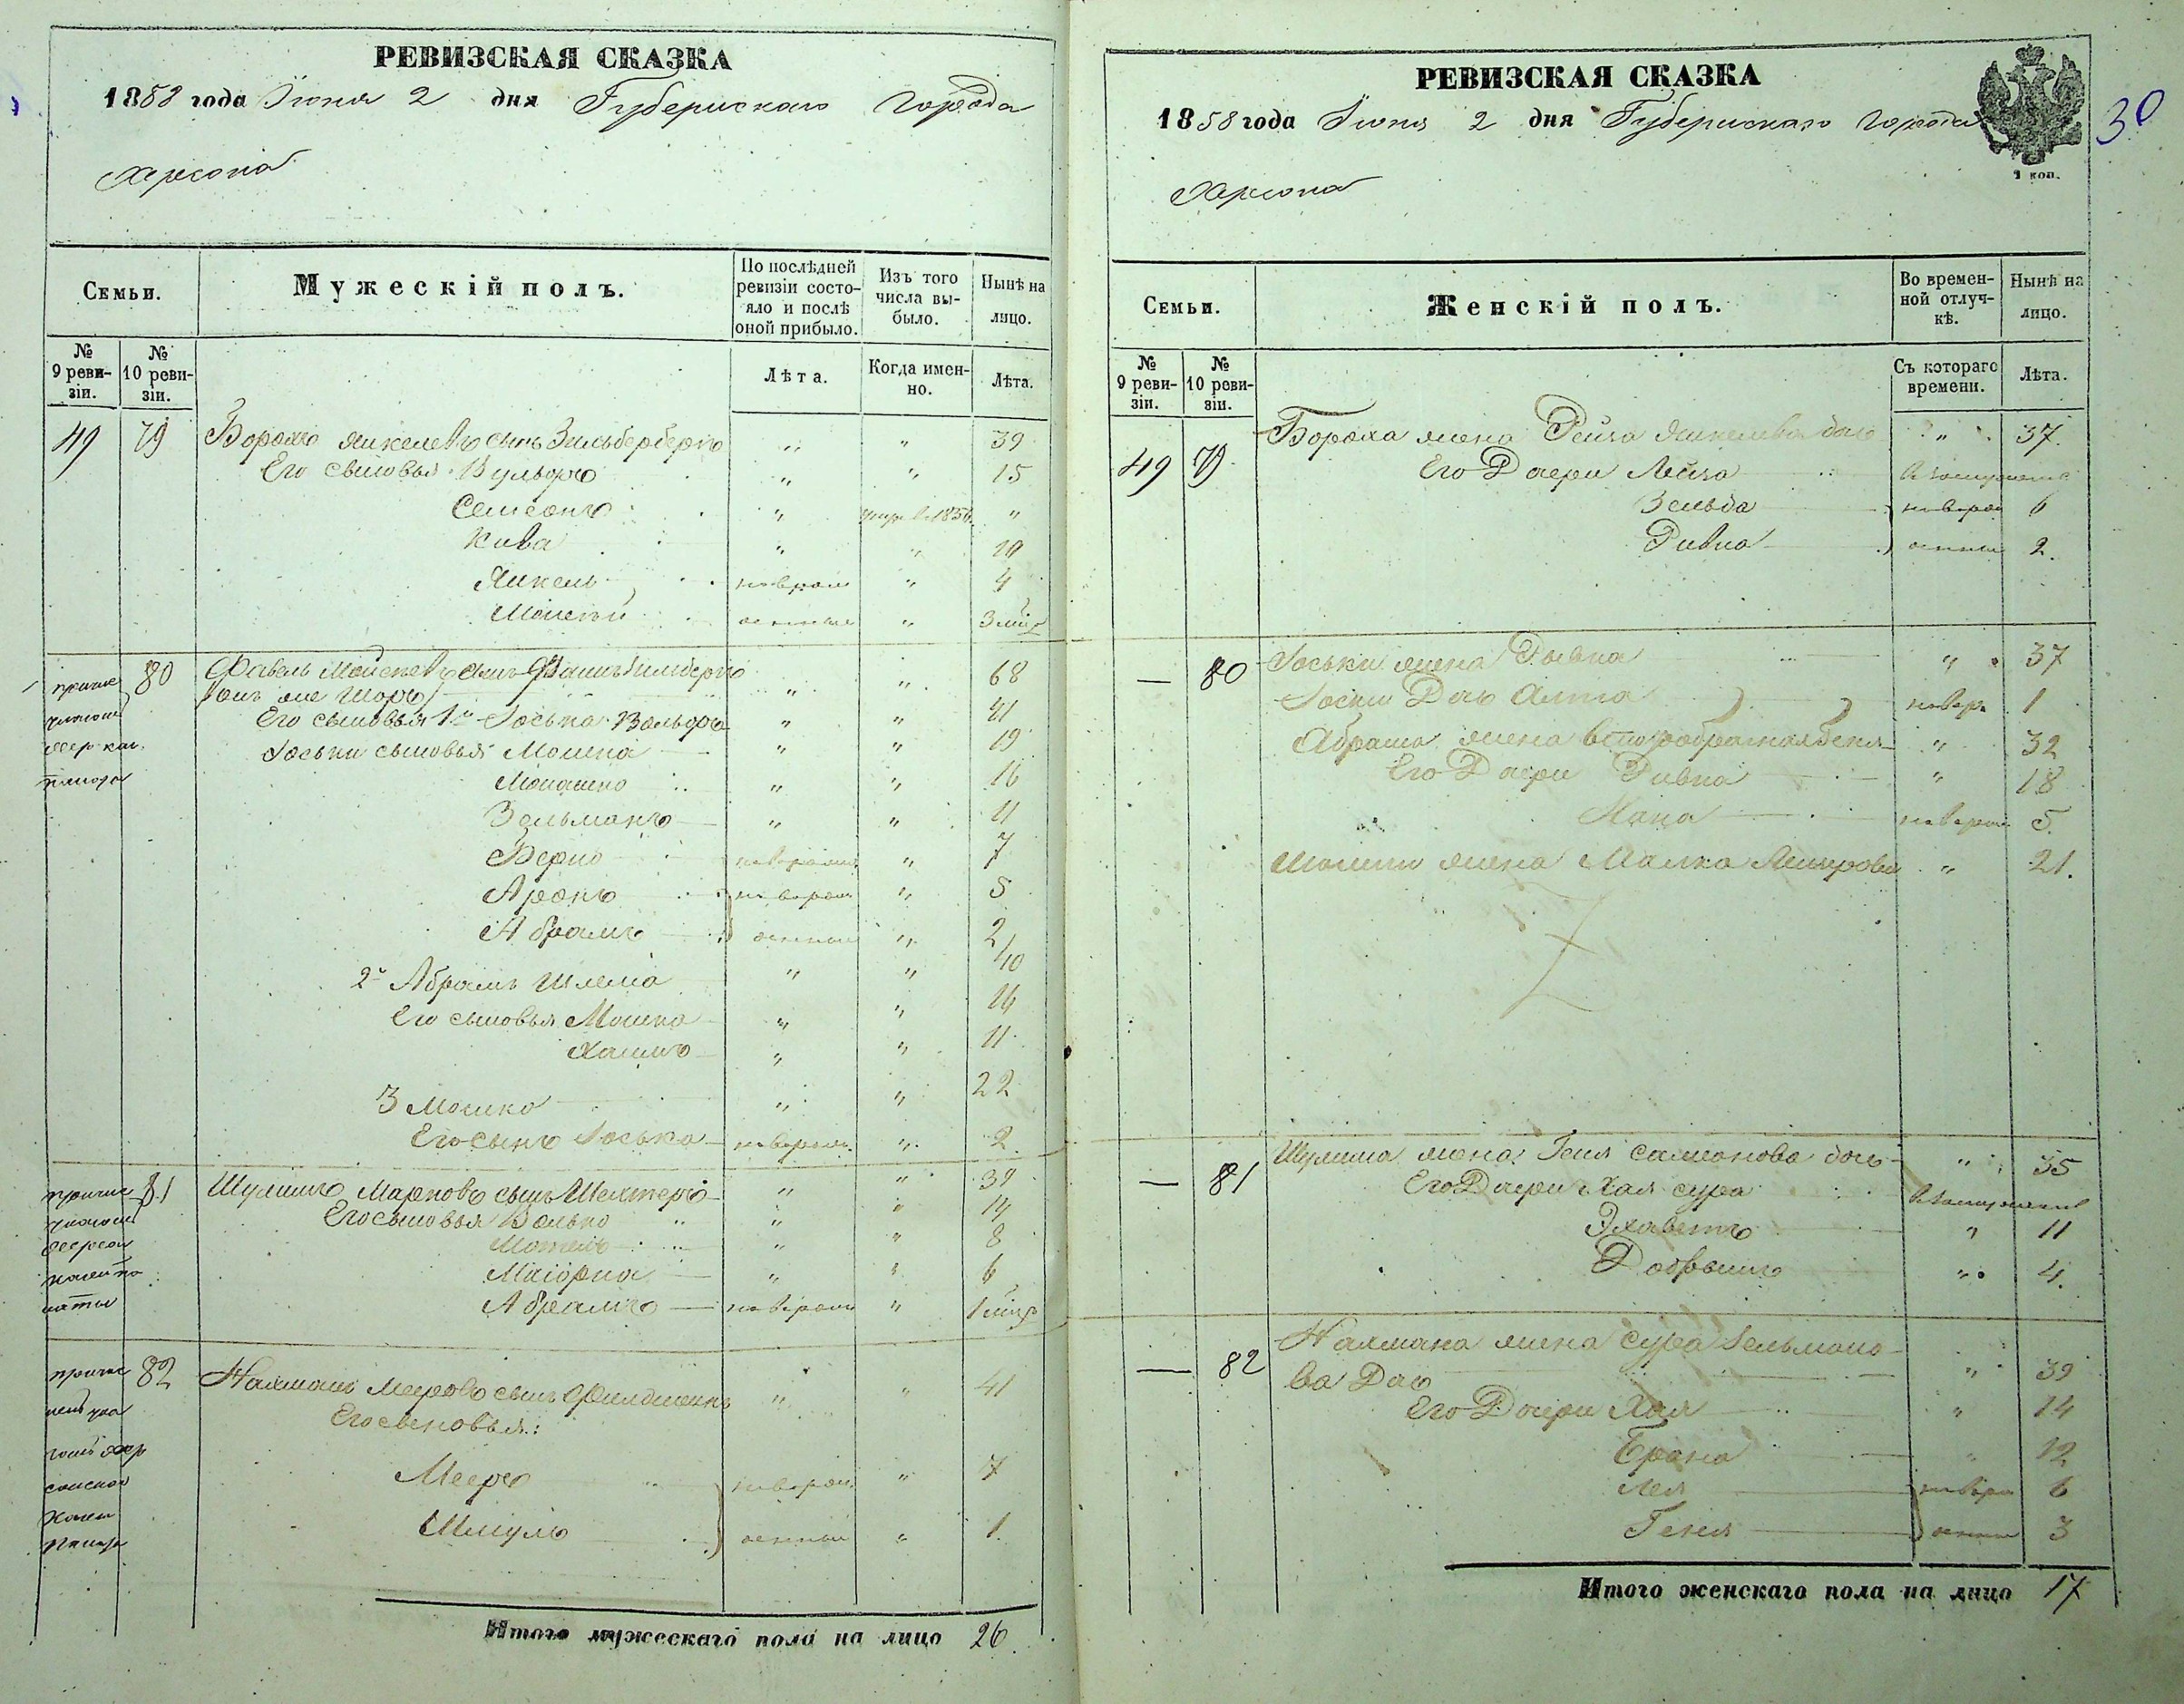 РЕВИЗСКАЯ СКАЗКА
1858 года Іюня 2 дня Губернскаго Города
Херсона
Семьи.
Мужескій полъ.
По послѣдней ревизіи состояло и послѣ оной прибыло.
Изъ того числа выбыло.
Нынѣ на лицо.
№ 9 ревизіи.
№ 10 ревизіи.
Лѣта.
Когда именно.
Лѣта.
49 79 Борохъ Янкелевъ сынъ Зильбербергъ " " 39
Его сыновья Вульфъ " " 15
Самсонъ " умер. в 1856 "
Кива " " 10
Янкель новорож "  4
Моисей денные " 3 мѣс
80 Фавель Моисеевъ сынъ " " 68
онъ же Шоръ
Его сыновья 1й Іоська Вольфъ " " 41
Іоськи сыновья Мошка " " 19
Монашко " " 16
Зельманъ " " 11
Берко новорожд " 7
Аронъ новорож " 5
Абрамъ денные " 2
2й Абрамъ Шлема " " 40
Его сыновья Мошко " " 14
Хаимъ " " 11
3 Мошко " " 22
Его сынъ Іоська новорожд. " 2
81 Шулимъ Марковъ сынъ Шехтеръ " " 39
Его сыновья Волько " " 14
Мотель " " 8
Маіорка " " 6
Абрамъ новорож " 1 мѣс
82 Нахманъ Мееровъ сынъ " " 41
Его сыновья:
Мееръ новорож " 7
Шмуль денный " 1
Итого мужескаго пола на лицо 26
РЕВИЗСКАЯ СКАЗКА
1858 года Іюня 2 дня Губернскаго Города
30
Херсона
1 коп.
Семьи.
Женскій полъ.
Во временной отлучкѣ.
Нынѣ на лицо.
№ 9 ревизіи.
№ 10 ревизіи.
Съ котораго времени.
Лѣта.
49 79 Бороха жена Рейза Янкелева дочь " 37
Его Дочери Лейза в замужест
Зельда новорож 6
Ривка денные 2
— 80 Іоськи жена Рывка " 37
Іоськи Дочь Алта новор. 1
Абрама жена второбрачная Бейля " 32
Его Дочери Ривка " 18
Хана новорож 5
Мошки жена Малка Лейзерова " 21
— 81 Шулима жена Геня Самсонова дочь " 35
Его Дочери Хая сура в замужест
Элзаветъ " 11
Добрышъ " 4
— 82 Нахмана жена Сура Зельмано-
ва Дочь " 39
Его Дочери Хая " 14
Брана " 12
Лея новорож 6
Геня денные 3
Итого женскаго пола на лицо 17